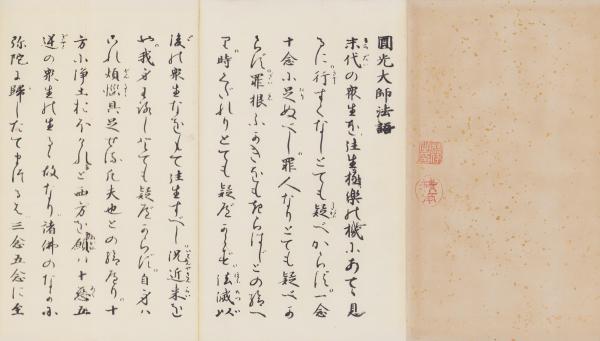 圓光大師法語
末代の衆生を往生極楽の機にあてゝ見
るに行すくなしとても疑べからず一念
十念に足ぬべし罪人なりとても疑べか
らず罪根ふかきをもきらはじとの給へ
り時くだれりとても疑べからず法滅以
後の衆生なをもて往生すべし況近来を
や我身わろしとても疑べからず自身ハ
これ煩悩具足せる凡夫也との給へり十
方に浄土おほけれど西方を願ハ十悪五
逆の衆生の生るゝ故なり諸佛のなかに
弥陀に帰したてまつるは三念五念に至